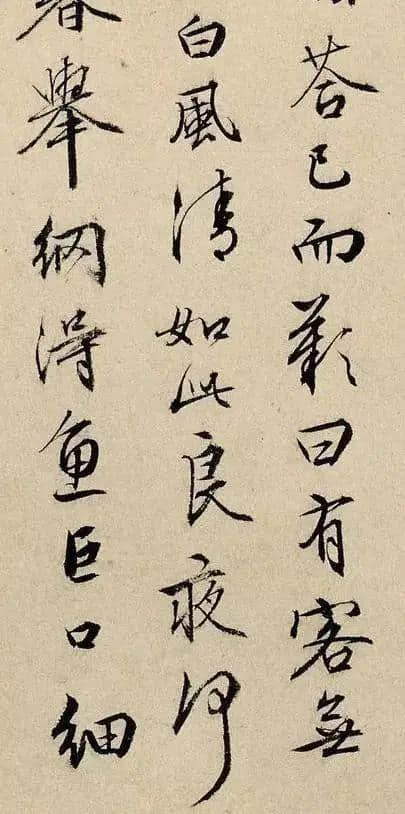 荅已而歎曰有客無
白風清如此良夜何
舉網得魚巨口細